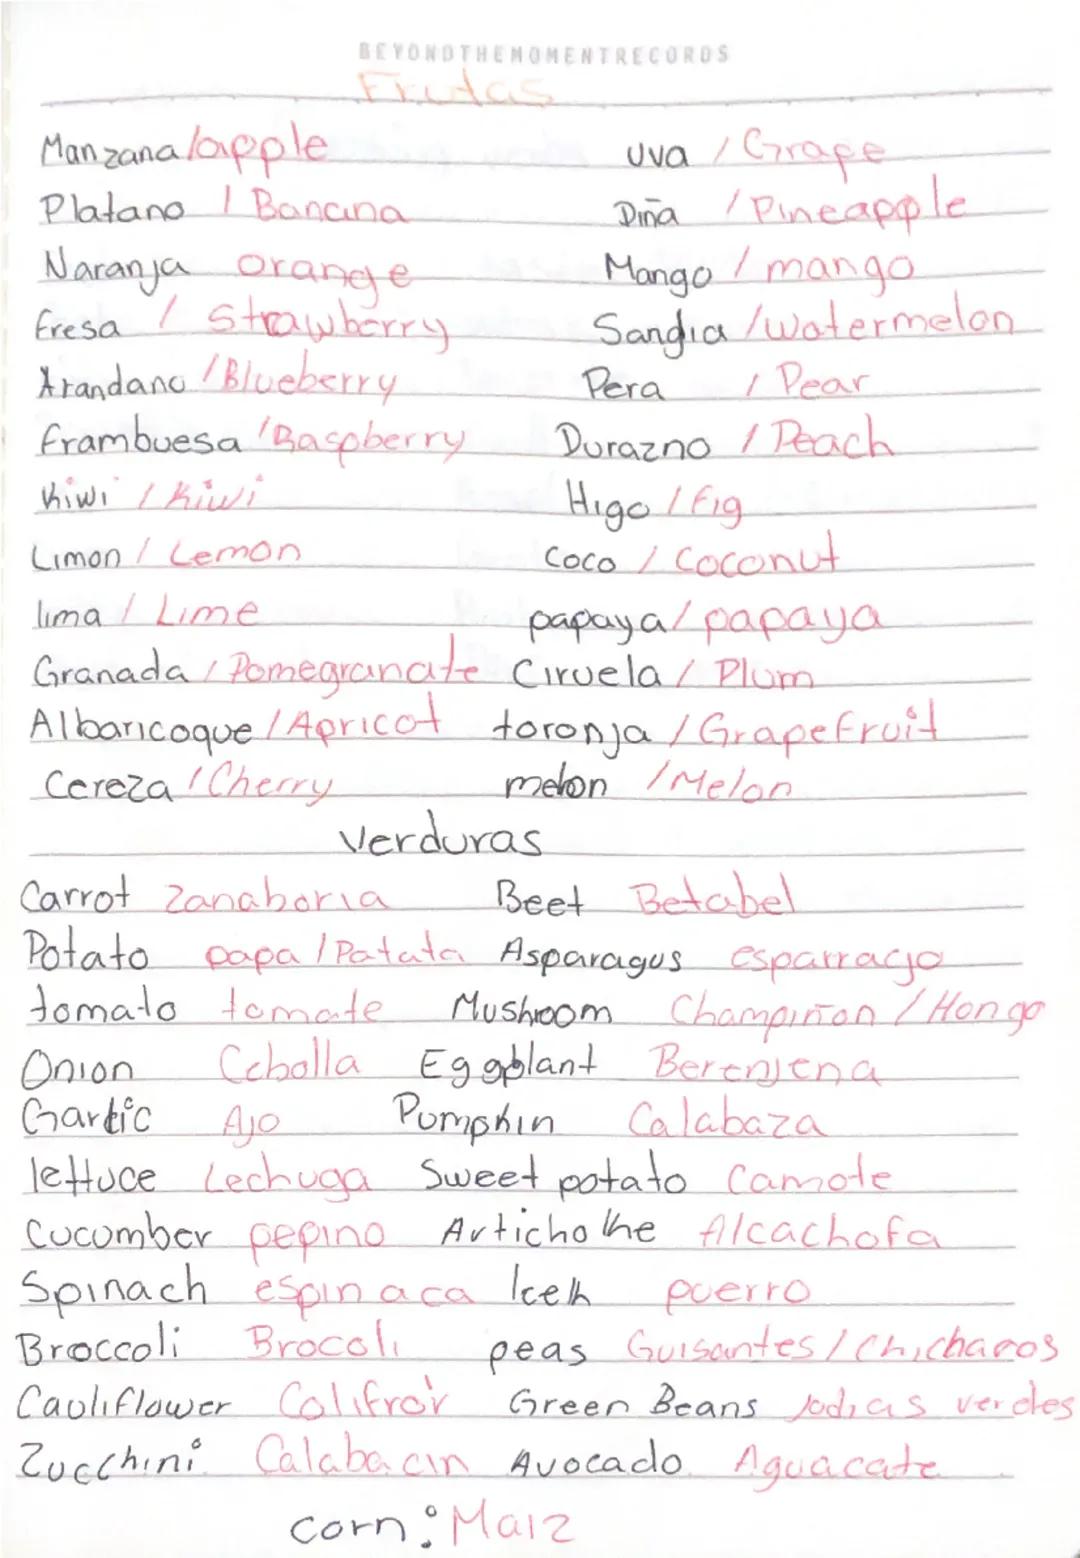 BEYONDTHEMOMENTRECORDS
Frutas
Manzana/apple uva / Grape
Platano / Banana Piña / Pineapple
Naranja orange Mango / mango
fresa / Strawberry Sandia /watermelon
Arandano /Blueberry Pera / Pear
frambuesa /Raspberry Durazno / Peach
Kiwi / Kiwi Higo / fig
Limon / Lemon Coco / Coconut
lima / Lime papaya/ papaya
Granada / Pomegranate Ciruela / Plum
Albaricoque / Apricot toronja / Grapefruit
Cereza / Cherry melon / Melon
Verduras
Carrot Zanahoria Beet Betabel
Potato papa / Patata Asparagus esparrago
tomato tomate Mushroom Champiñon / Hongo
Onion Cebolla Eggplant Berenjena
Garlic Ajo Pumpkin Calabaza
lettuce Lechuga Sweet potato Camote
Cucumber pepino Artichokhe Alcachofa
Spinach espinaca leek puerro
Broccoli Brocoli peas Guisantes / Chicharos
Cauliflower Colifror Green Beans Judias verdes
Zucchini Calabacin Avocado Aguacate
corn: Maiz